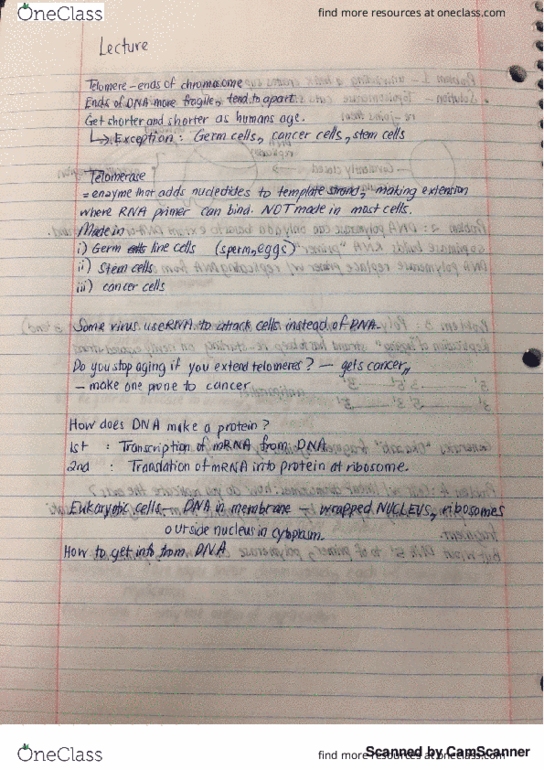 OneClass
find more resources at oneclass.com
Lecture
Telomere - ends of chromosome
Ends of DNA more fragile, tend to apart.
Get shorter and shorter as humans age.
↳ Exception: Germ cells, cancer cells, stem cells
Telomerase
= enzyme that adds nucleotides to template strand, making extension
where RNA primer can bind. NOT made in most cells.
Made in
i) Germ line cells (sperm, eggs)
ii) Stem cells
iii) cancer cells
Some virus use RNA to attack cells instead of DNA.
Do you stop aging if you extend telomeres? - gets cancer,
- make one prone to cancer
How does DNA make a protein?
1st : Transcription of mRNA from DNA
2nd : Translation of mRNA into protein at ribosome.
Eukaryotic cells - DNA in membrane - wrapped NUCLEUS, ribosomes
outside nucleus in cytoplasm.
How to get info from DNA
OneClass
find more resources at oneclass.com
Scanned by CamScanner